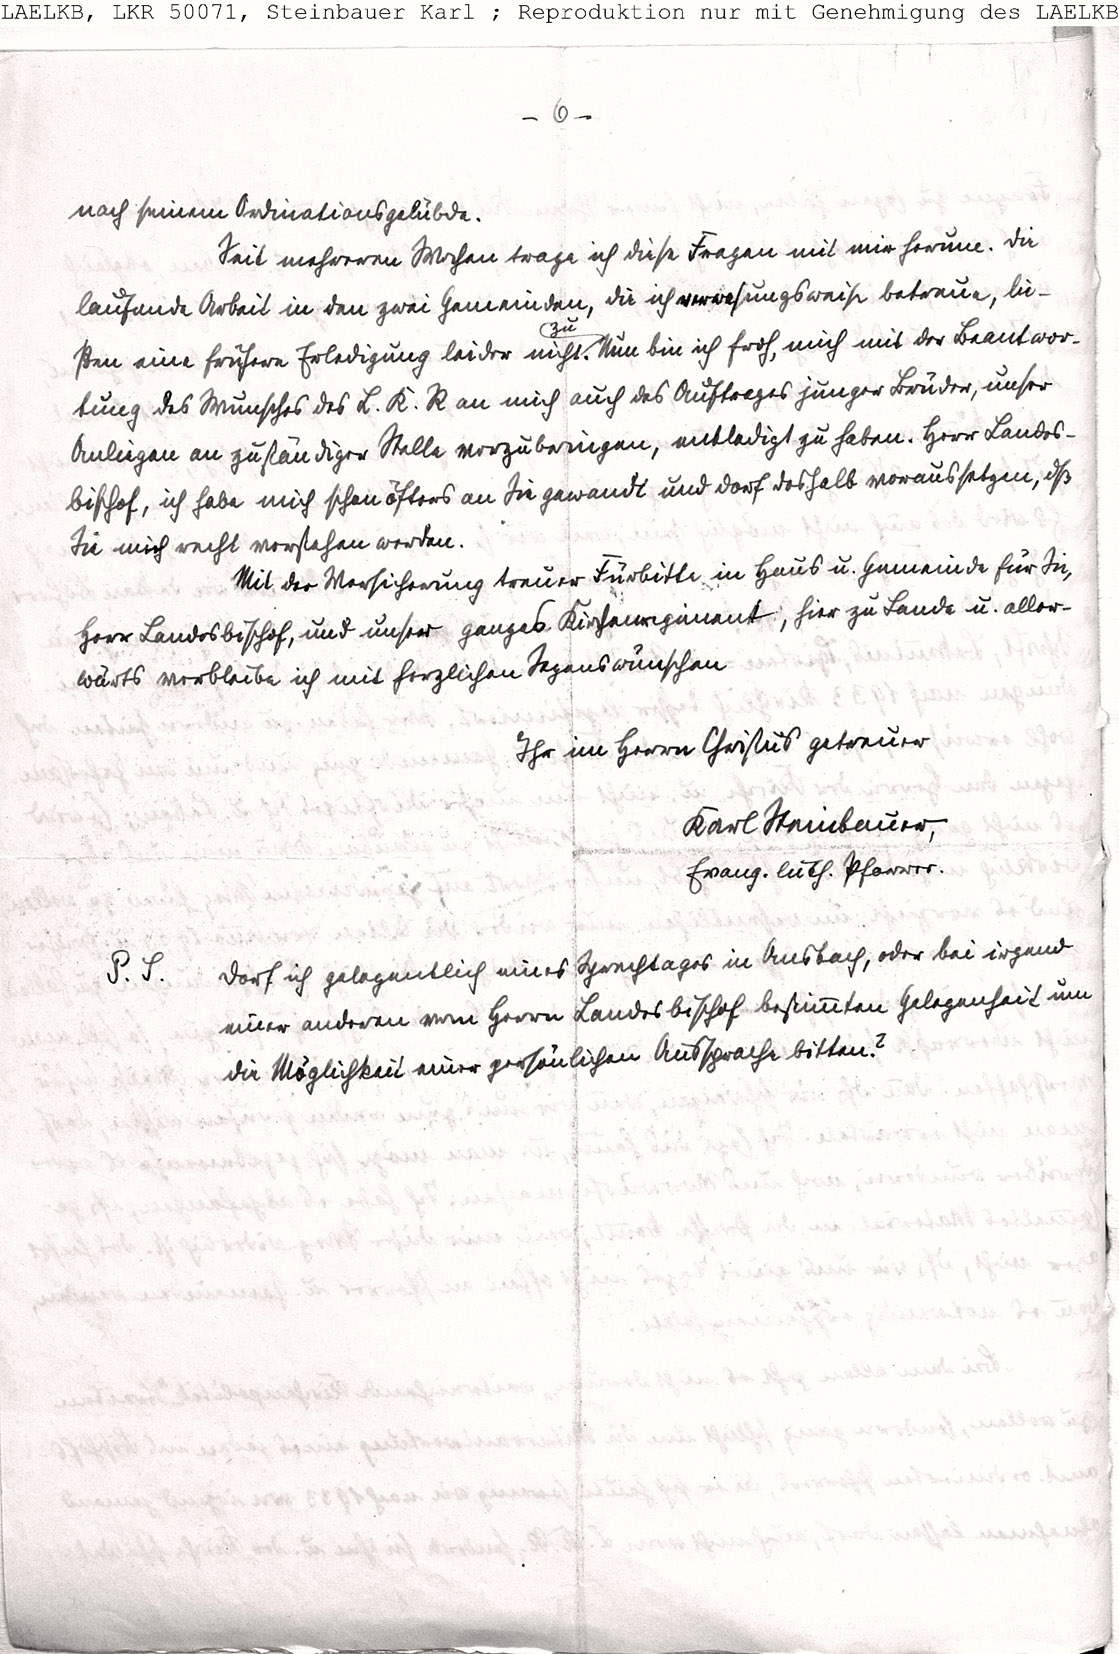 LAELKB, LKR 50071, Steinbauer Karl ; Reproduktion nur mit Genehmigung des LAELKB
- 6 -
nach seinem Ordinationsgelübde.
Seit mehreren Wochen trage ich diese Fragen mit mir herum. Die
laufende Arbeit in den zwei Gemeinden, die ich verwesungsweise betreue, lie-
ßen eine frühere Erledigung leider nicht zu. Nun bin ich froh, mich mit der Beantwor-
tung des Wunsches des L. K. R an mich auch des Auftrages junger Brüder, unser
Anliegen an zuständiger Stelle vorzubringen, entledigt zu haben. Herr Landes-
bischof, ich habe mich schon öfters an Sie gewandt und darf deshalb voraussetzen, dß
Sie mich recht verstehen werden.
Mit der Versicherung treuer Fürbitte in Haus u. Gemeinde für Sie,
Herr Landesbischof, und unser ganzes Kirchenregiment, hier zu Lande u. aller-
wärts verbleibe ich mit herzlichen Segenswünschen
Ihr im Herrn Christus getreuer
Karl Steinbauer,
Evang. luth. Pfarrer.
P. S. Darf ich gelegentlich eines Sprechtages in Ansbach, oder bei irgend
einer anderen vom Herrn Landesbischof bestimmten Gelegenheit um
die Möglichkeit einer persönlichen Aussprache bitten.?